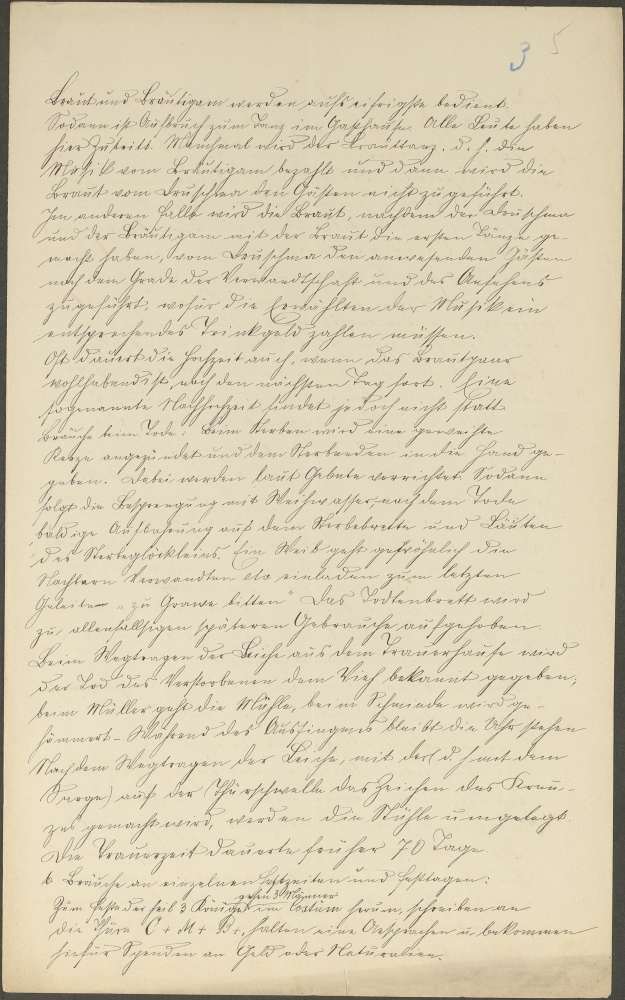 3 5
Braut und Bräutigam werden aufs eifrigste bedient.
Sodann ist Aufbruch zum Tanz im Gasthause. Alle Leute haben
hier Zutritt. Manchmal wird der Brauttanz, d. h. die
Musik vom Bräutigam bezahlt und dann wird die
Braut vom Druschma den Gästen nicht zugeführt.
Im anderen Falle wird die Braut, nachdem der Druschma
und der Bräutigam mit der Braut die ersten Tänze ge-
macht haben, vom Druschma den anwesenden Gästen
nach dem Grade der Verwandtschaft und des Ansehens
zugeführt, wofür die Erwählten der Musik ein
entsprechendes Trinkgeld zahlen müssen.
Oft dauert die Hochzeit auch, wenn das Brautpaar
wohlhabend ist, noch den nächsten Tag fort. Eine
sogenannte Nachhochzeit findet jedoch nicht statt
Bräuche beim Tode: Beim Sterben wird eine geweihte
Kerze angezündet und dem Sterbenden in die Hand ge-
geben. Dabei werden laut Gebete verrichtet. Sodann
folgt die Besprengung mit Weihwasser, nach dem Tode
baldige Aufbahrung auf dem Sterbebrette und Läuten
des Sterbeglöckleins. Ein Weib geht gewöhnlich die
Nachbarn Verwandten etc einladen zum letzten
Geleite „zu Grawe bitten" Das Todtenbrett wird
zu allenfallsigen späteren Gebrauche aufgehoben.
Beim Wegtragen der Leiche aus dem Trauerhause wird
der Tod des Verstorbenen dem Vieh bekannt gegeben,
beim Müller geht die Mühle, beim Schmiede wird ge-
hämmert – Während des Aussingens bleibt die Uhr stehen
Nach dem Wegtragen der Leiche, mit der (d. h mit dem
Sarge) auf der Thürschwelle das Zeichen des Kreu-
zes gemacht wird, werden die Stühle umgelegt.
Die Trauerzeit dauerte früher 70 Tage
b Bräuche an einzelnen Festzeiten und Festtagen:
gehen 3 Männer
Zum Feste der heil 3 Könige im Costüm herum, schreiben an
die Thüre C + M + B +, halten eine Ansprachen u. bekommen
hiefür Spenden an Geld oder Naturalien.